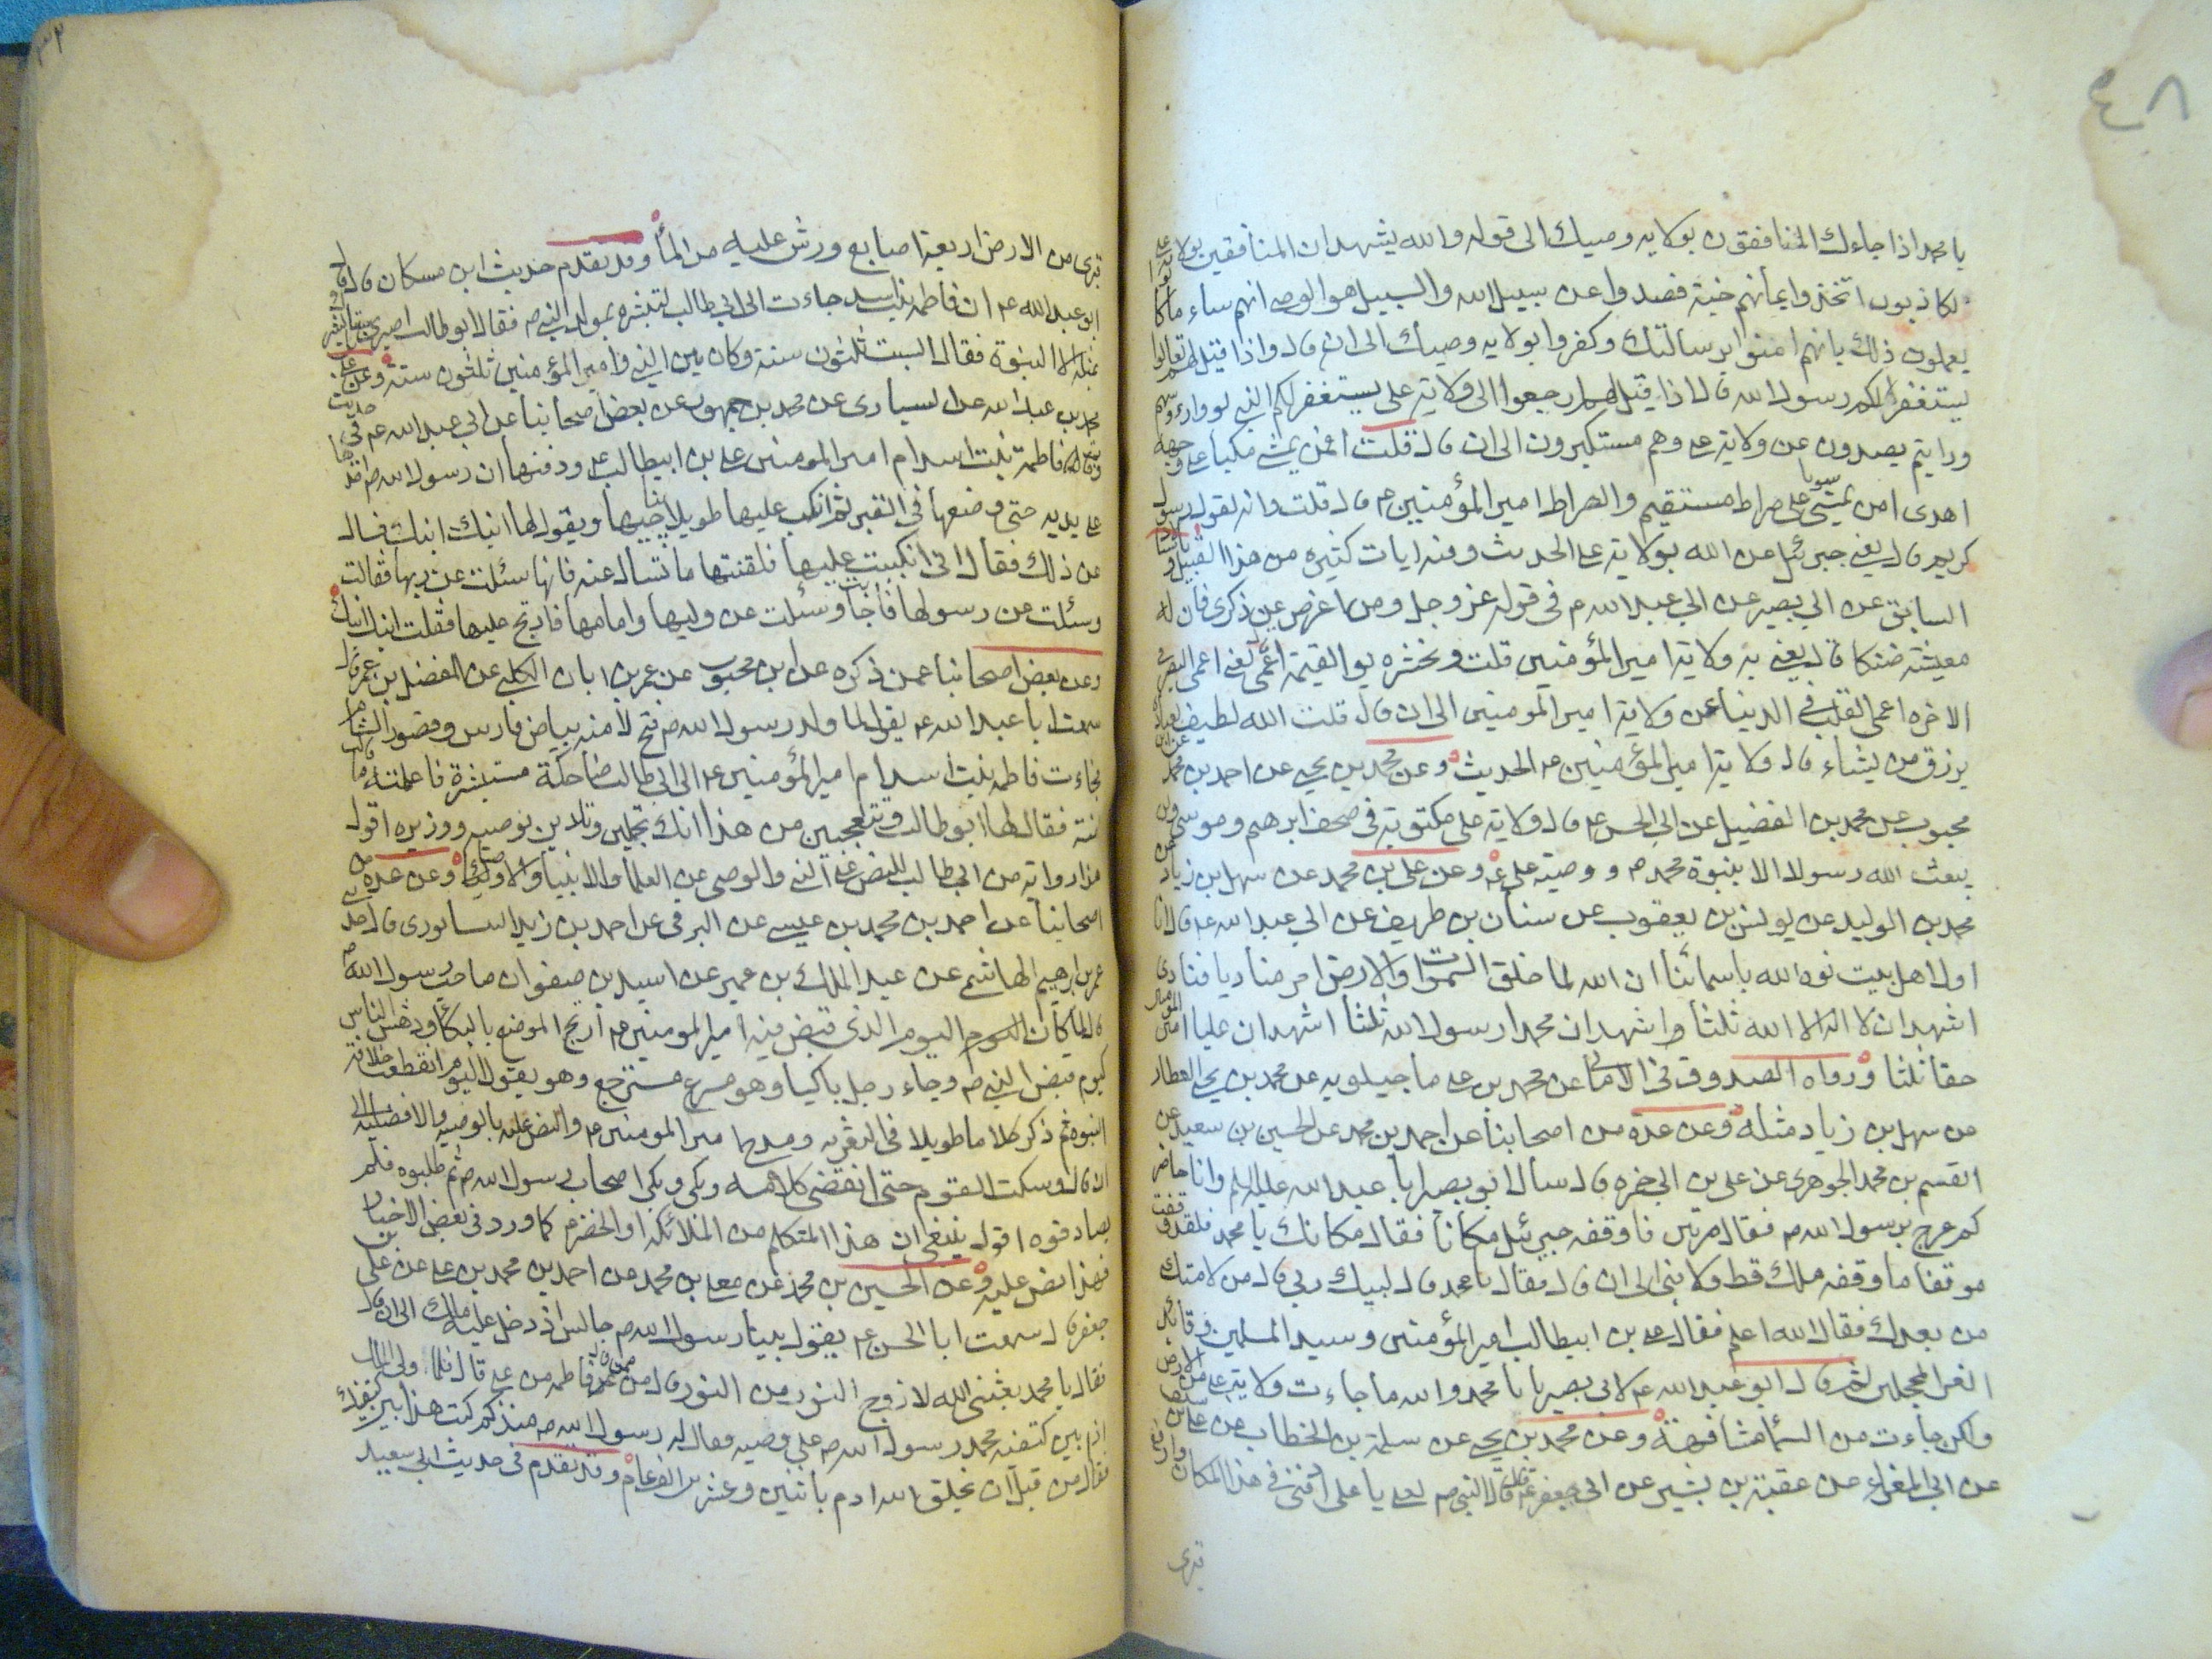 ٤٨
يا محمد اذا جاءك المنافقون بولاية وصيك الى قوله والله يشهد ان المنافقين بولاية على
لكاذبون اتخذوا يمانهم جنة فصدوا عن سبيل الله والسبيل هو الوصى انهم ساء ما كانوا
يعملون ذلك بانهم امنوا برسالتك وكفروا بولاية وصيك الى ان قال واذا قيل لهم تعالوا
يستغفر لكم رسول الله قال اذا قيل لهم ارجعوا الى ولاية على يستغفر لكم النبى لووا رؤسهم
ورايتهم يصدون عن ولاية على وهم مستكبرون الى ان قال قلت افمن يمشى مكبا على وجهه
اهدى امن يمشى سويا على صراط مستقيم والصراط امير المؤمنين ع قال قلت وانه لقول رسول
كريم قال يعنى جبرئيل عن الله بولاية على الحديث وفيه ايات كثيرة من هذا القبيل وبالاسناد
السابق عن ابى بصير عن ابى عبد الله م فى قوله عز وجل ومن اعرض عن ذكرى فان له
معيشة ضنكا قال يعنى به ولاية امير المؤمنين قلت ونحشره يوم القيمة اعمى قال يعنى اعمى البصر فى
الاخرة اعمى القلب فى الدنيا عن ولاية امير المومنين الى ان قال قلت الله لطيف بعباده
يرزق من يشاء قال ولاية امير المؤمنين ع الحديث وعن محمد بن يحيى عن احمد بن محمد عن ابن
محبوب عن محمد بن الفضيل عن ابى الحسن ع قال ولاية على مكتوبة فى صحف ابرهيم وموسى ولن
يبعث الله رسولا الا بنبوة محمد م ووصية على ع وعن على بن محمد عن سهل بن زياد عن
محمد بن الوليد عن يونس بن يعقوب عن سنان بن طريف عن ابى عبد الله ع قال انا
اول اهل بيت نوه الله باسمائنا ان الله لما خلق السموات والارض امر مناديا فنادى
اشهد ان لا اله الا الله ثلثا واشهد ان محمدا رسول الله ثلثا اشهد ان عليا امير المؤمنين
حقا ثلثا ورواه الصدوق فى الامالى عن محمد بن على ماجيلويه عن محمد بن يحيى العطار
عن سهل بن زياد مثله وعن عدة من اصحابنا عن احمد بن محمد عن الحسين بن سعيد عن
القسم بن محمد الجوهرى عن على بن ابى حمزه قال سأل ابو بصير ابا عبد الله عليه السلم وانا حاضر
كم عرج برسول الله م فقال مرتين فاوقفه جبرئيل مكانا فقال مكانك يا محمد فلقد وقفت
موقفا ما وقفه ملك قط ولا نبى الى ان قال فقال يا محمد قال لبيك ربى قال من لامتك
من بعدك فقال الله اعلم فقال على بن ابيطالب امير المؤمنين وسيد المسلمين وقائد
الغر المحجلين ثم قال ابو عبد الله ع لابى بصير يا با محمد والله ما جاءت ولاية على من الارض
ولكن جاءت من السماء مشافهة وعن محمد بن يحيى عن سلمة بن الخطاب عن على بن سيف
عن ابى المغراء عن عقبة بن بشير عن ابى جعفر ع قال قال النبى م لعلى يا على ادفنى فى هذا المكان وارفع
قبرى
قبرى من الارض اربعة اصابع ورش عليه من الماء وقد تقدم حديث ابن مسكان قال قال
ابو عبد الله ع ان فاطمة بنت اسد جاءت الى ابى طالب لتبشره بمولد النبى م فقال ابو طالب اصبرى سبتا ابشرك
بمثله الا النبوة فقال السبت ثلثون سنة وكان بين النبى وامير المؤمنين ثلثون سنة وعن على بن
محمد بن عبد الله عن السيارى عن محمد بن جمهور عن بعض اصحابنا عن ابى عبد الله ع فى حديث
وفاة فاطمة بنت اسد ام امير المومنين على بن ابيطالب ع ودفنها ان رسول الله م اخذها
على يديه حتى وضعها فى القبر ثم انكب عليها طويلا يناجيها ويقول لها ابنك ابنك فسئل
عن ذلك فقال انى انكببت عليها فلقنتها ما تسأل عنه فانها سئلت عن ربها فقالت
وسئلت عن رسولها فاجابت وسئلت عن وليها وامامها فارتج عليها فقلت ابنك ابنك
وعن بعض اصحابنا عمن ذكره عن ابن محبوب عن عمر بن ابان الكلبى عن المفضل بن عمر قال
سمعت ابا عبد الله ع يقول لما ولد رسول الله م فتح لامنه بياض فارس وقصور الشام
فجاءت فاطمة بنت اسد ام امير المؤمنين ع الى ابى طالب ضاحكة مستبشرة فاعلمته ما قالت
امنة فقال لها ابو طالب وتتعجبين من هذا انك تحبلين وتلدين بوصيه ووزيره اقول
من ابى طالب النص على النبى والوصى عن العلماء والانبياء والاوصياء وعن عدة من
اصحابنا عن احمد بن محمد بن عيسى عن البرقى عن احمد بن زيد النيسابورى قال حدثنى
عمر بن ابرهيم الهاشمى عن عبد الملك بن عمير عن اسيد بن صفوان صاحب رسول الله م
قال لما كان اليوم الذى قبض فيه امير المومنين ع ارتج الموضع بالبكاء ودهش الناس
كيوم قبض النبى م وجاء رجل باكيا وهو مسرع مسترجع وهو يقول اليوم انقطعت خلافة
النبوة ثم ذكر كلاما طويلا فى التعزية ومدح امير المومنين ع والنص عليه بالوصية والافضلية الى
ان قال وسكت القوم حتى انقضى كلامه وبكى وبكى اصحاب رسول الله م ثم طلبوه فلم
يصادفوه اقول ينبغى ان هذا المتكلم من الملائكة او الخضر م كما ورد فى بعض الاخبار
فهذا نص عليه وعن الحسين بن محمد عن معلى بن محمد عن احمد بن محمد بن على عن على بن
جعفر قال سمعت ابا الحسن ع يقول بينا رسول الله م جالس اذ دخل عليه ملك الى ان قال
فقال يا محمد بعثنى الله لازوج النور من النور قال من ممن قال فاطمة من على قال فلما ولى الملك
اذا بين كتفيه محمد رسول الله م على وصيه فقال له رسول الله م منذ كم كتب هذا بين كتفيك
فقال من قبل ان يخلق الله ادم باثنين وعشرين الف عام وقد تقدم فى حديث ابى سعيد